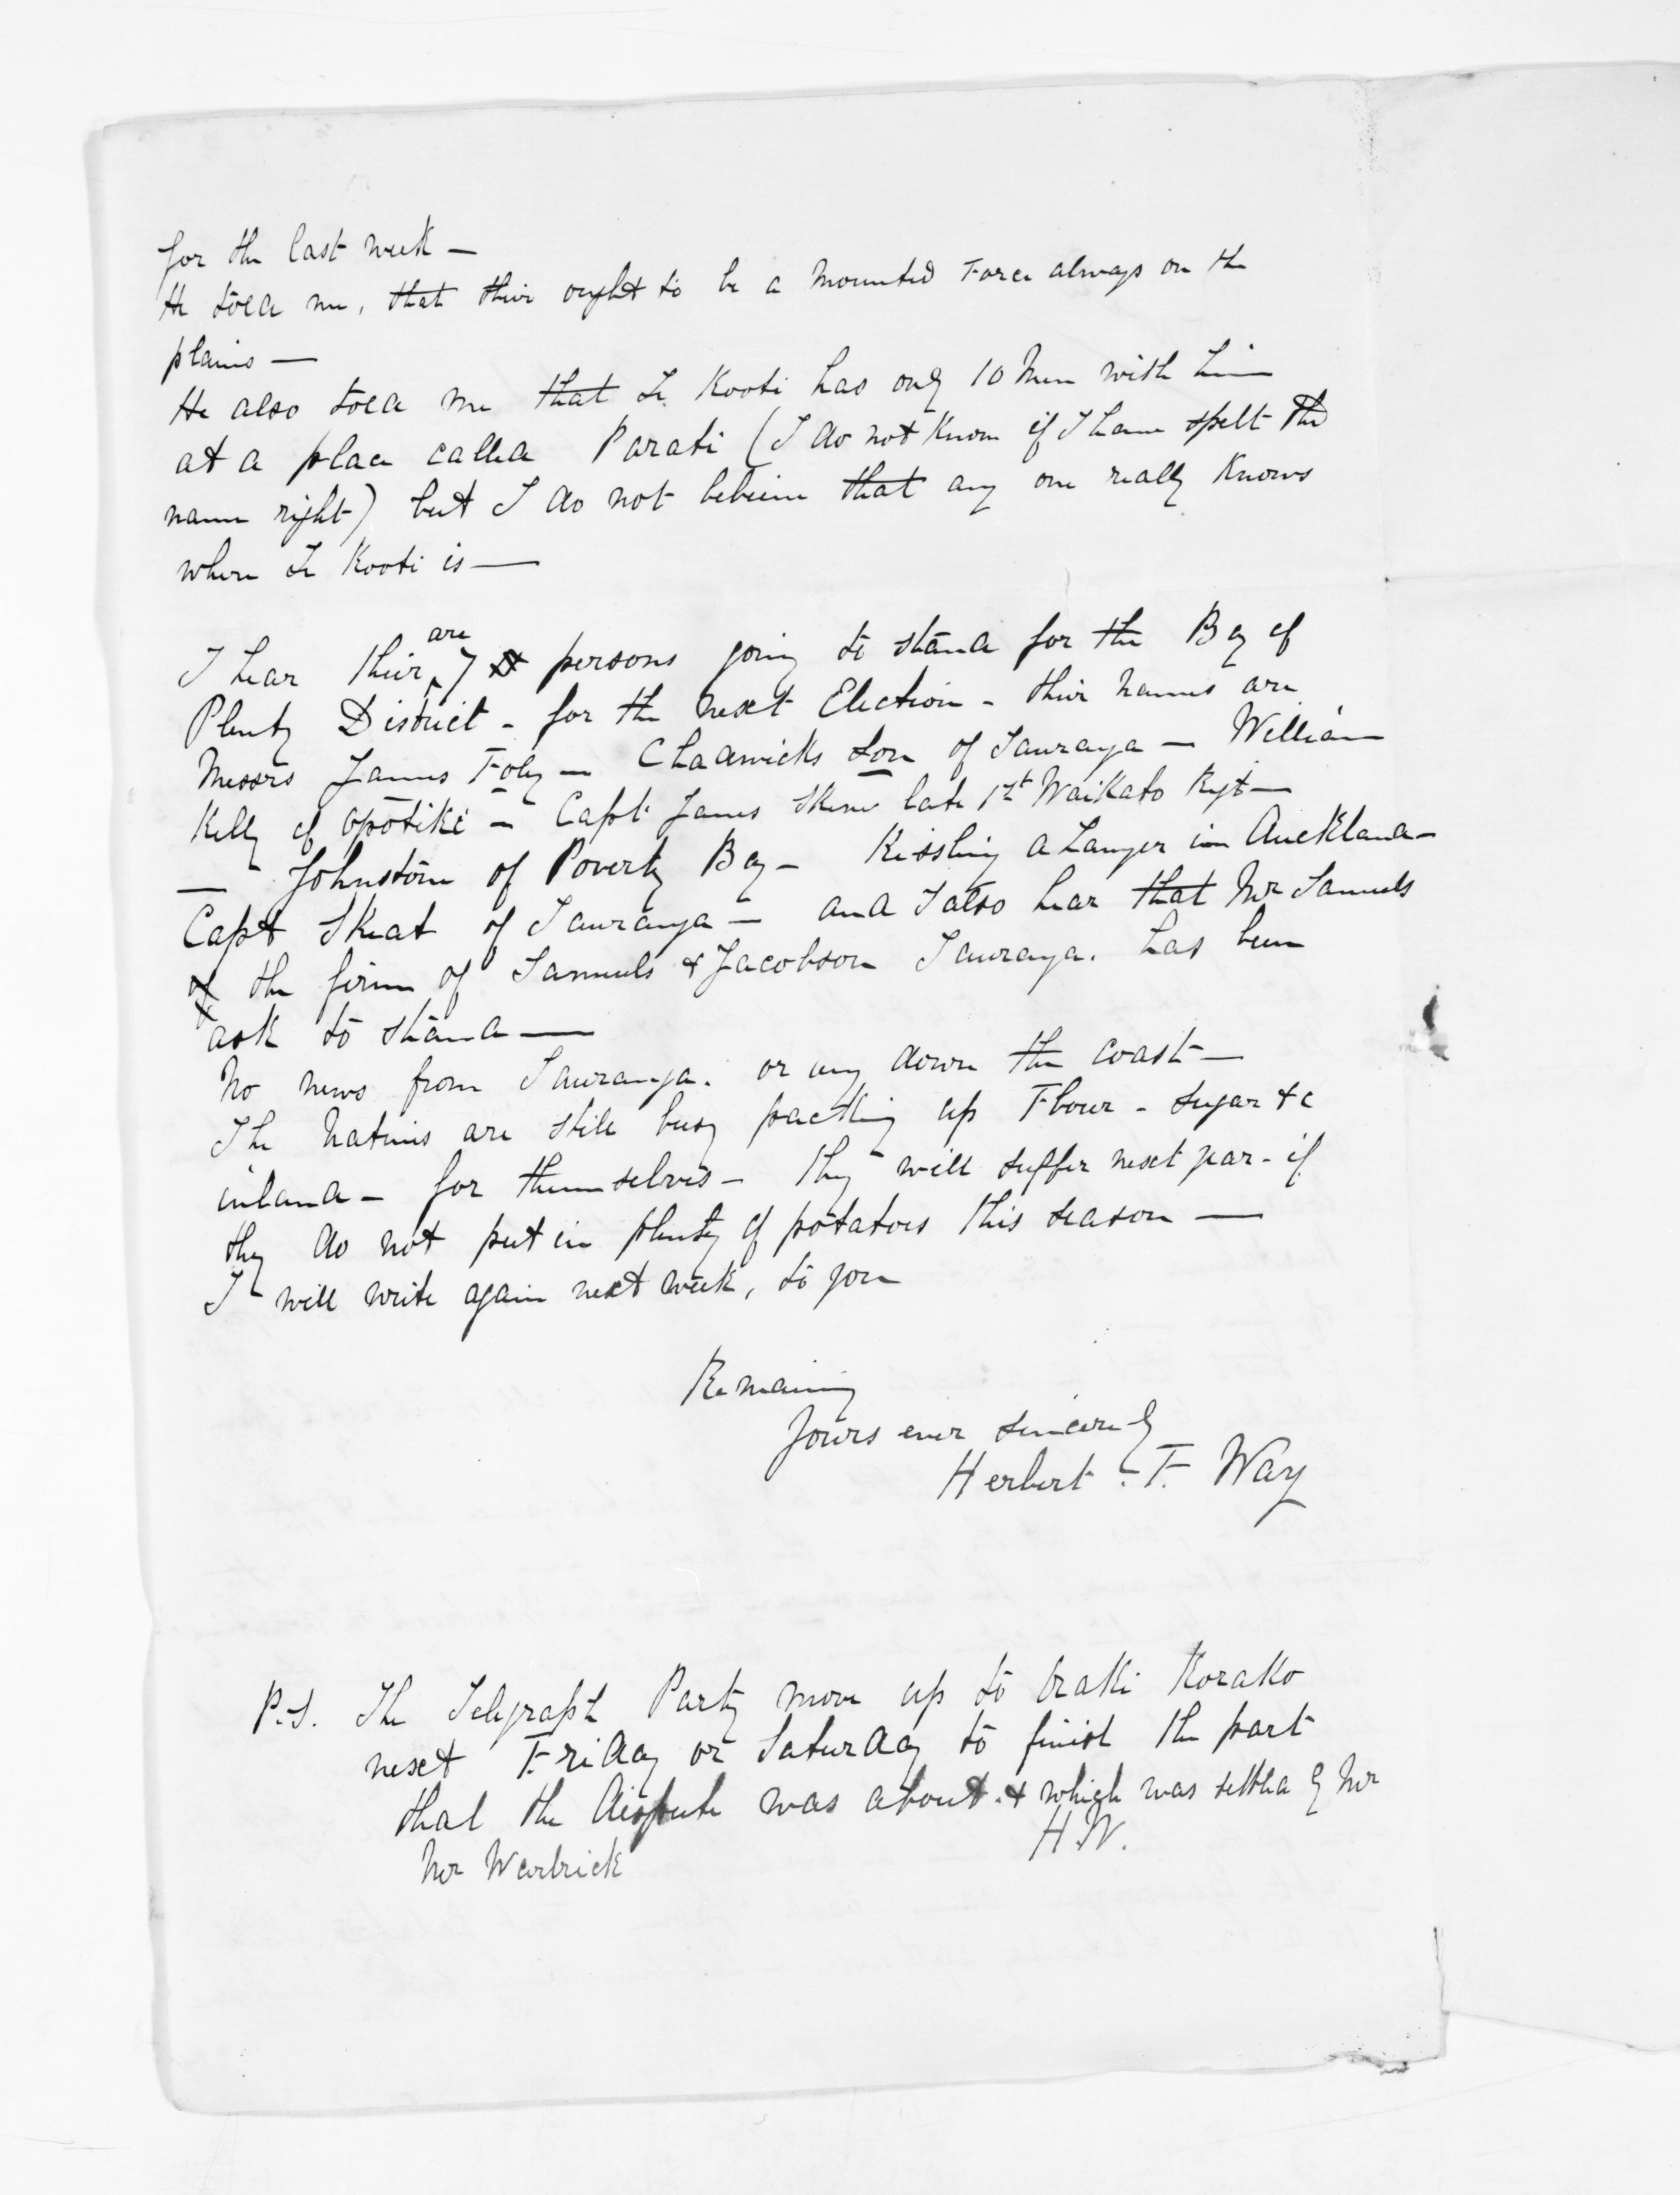 for the last week —
He told me, that their ought to be a Mounted Force always on the
plains —
He also told me that Te Kooti has only 10 Men with him
at a place called Parati (I do not know if I have spelt the
name right) but I do not believe that any one really knows
where Te Kooti is —
I hear their are 7 persons going to stand for the Bay of
Plenty District - for the next Election - their names are
Messrs James Foley — Chadwicks Son of Tauranga — William
Kelly of Opotiki — Capt James Skene late 1st Waikato Rgt —
— Johnstone of Poverty Bay — Kissling a Lawyer in Auckland —
Capt Skeat of Tauranga — and I also hear that Mr Samuels
of the firm of Samuels & Jacobson Tauranga. has been
ask to stand —
No news from Tauranga. or any down the coast —
The Natives are still busy packing up Flour - Sugar &c
inland — for themselves — they will suffer next year - if
they do not put in plenty of potatoes this season —
I will write again next week, to you
Remaining
Yours ever sincerely
Herbert . F. Way
P.S. The Telegraph Party move up to Oraki Korako
next Friday or Saturday to finish the part
that the dispute was about. & which was settled by Mr
Mr Warbrick
H.W.